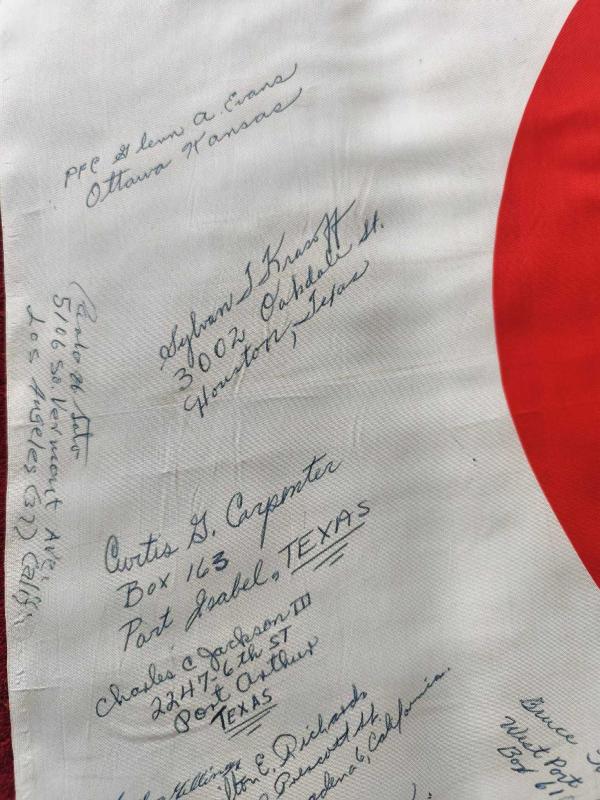 PFC Glenn A. Evans
Ottawa Kansas
Sylvan I Krasoff
3002 Oakdale St.
Houston, Texas
5106 So. Vermont Ave.
Los Angeles (37) Calif.
Curtis G. Carpenter
Box 163
Port Isabel, TEXAS
Charles C Jackson III
2247-6th ST
Port Arthur
TEXAS
E. Richards
Prescott St.
6, California.
Bruce
West Port
Box 61